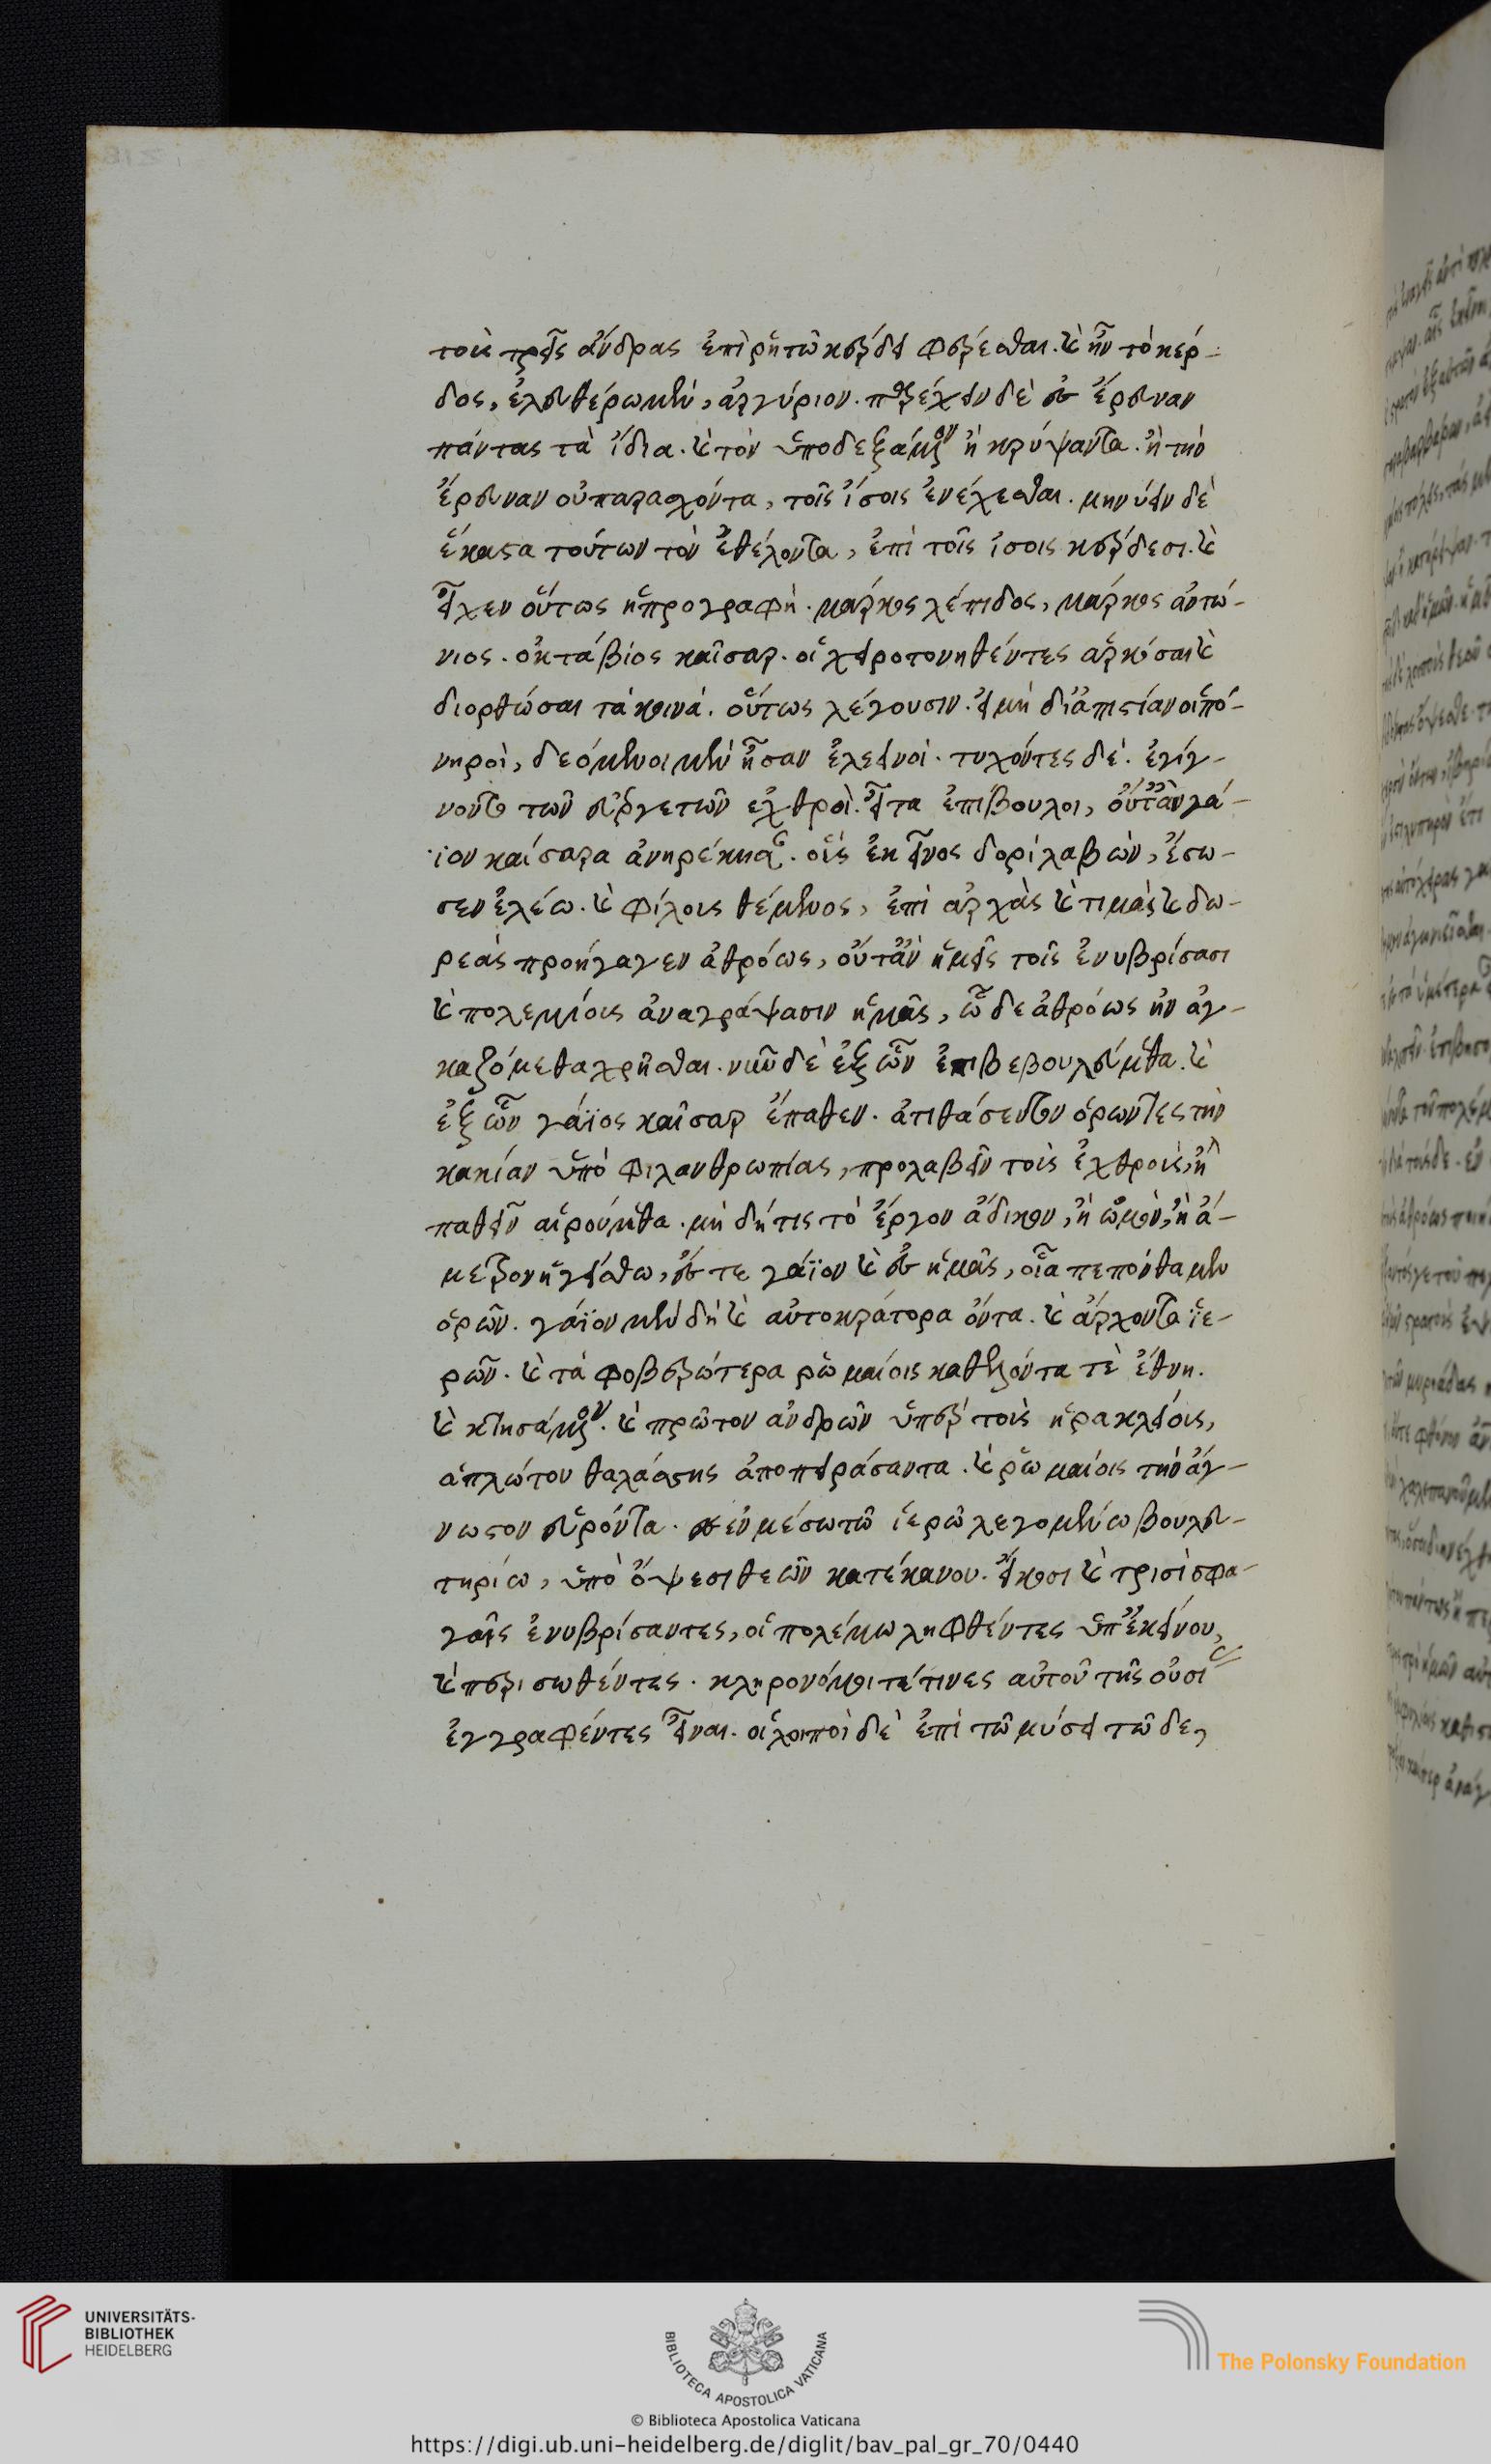 τοὺς τρεῖς ἄνδρας ἐπὶ ῥητῶ κέρδει φέρεσθαι. καὶ ἦν τὸ κέρ-
δος, ἐλευθέρω μὲν, ἀργύριον. παρέχειν δὲ ἐς ἔρευναν
πάντας τὰ ἴδια. καὶ τὸν ὑποδεξάμενον ἢ κρύψαντα. ἢ τὴν
ἔρευναν οὐ παρασχόντα, τοῖς ἴσοις ἐνέχεσθαι. μηνύειν δὲ
ἕκαστα τούτων τὸν ἐθέλοντα, ἐπὶ τοῖς ἴσοις κέρδεσι. καὶ
εἶχεν οὕτως ἡ προγραφὴ. μάρκος λέπιδος, μάρκος ἀντώ-
νιος. ὀκτάβιος καῖσαρ. οἱ χειροτονηθέντες ἁρμόσαι καὶ
διορθῶσαι τὰ κοινά. οὕτως λέγουσιν. εἰ μὴ δι' ἀπιστίαν οἱ πό-
νηροὶ, δεόμενοι μὲν ἦσαν ἐλεεινοὶ. τυχόντες δὲ. ἐγίγ-
νοντο τῶν εὐεργετῶν ἐχθροὶ. εἶτα ἐπίβουλοι, οὔτ' ἂν γά-
ϊον καίσαρα ἀνηρέκησαν. οὓς ἐκεῖνος δορὶ λαβὼν, ἔσω-
σεν ἐλέω. καὶ φίλους θέμενος, ἐπὶ ἀρχὰς καὶ τιμὰς καὶ δω-
ρεὰς προήγαγεν ἀθρόως, οὔτ' ἂν ἡμεῖς τοῖς ἐνυβρίσασι
καὶ πολεμίοις ἀναγράψασιν ἡμᾶς, ὧδε ἀθρόως ἠναγ-
καζόμεθα χρῆσθαι. νῦν δὲ ἐξ ὧν ἐπιβεβουλεύμεθα. καὶ
ἐξ ὧν γάϊος καῖσαρ ἔπαθεν. ἀτιθάσευτον ὁρῶντες τὴν
κακίαν ὑπὸ φιλανθρωπίας, προλαβεῖν τοὺς ἐχθροὺς, ἢ
παθεῖν αἱρούμεθα. μὴ δή τις τὸ ἔργον ἄδικον, ἢ ὠμὸν, ἢ ἄ-
μετρον ἡγείσθω, ἔς τε γάϊον καὶ ἐς ἡμᾶς, οἷα πεπόνθαμεν
ὁρῶν. γάϊον μὲν δὴ καὶ αὐτοκράτορα ὄντα. καὶ ἄρχοντα ἱε-
ρῶν. καὶ τὰ φοβερώτερα ῥωμαίοις καθελόντα τὲ ἔθνη.
καὶ κτησάμενον. καὶ πρῶτον ἀνδρῶν ὑπὲρ τοὺς ἡρακλείους,
ἀπλώτου θαλάσσης ἀποπειράσαντα. καὶ ῥωμαίοις τὴν ἄγ-
νωστον εὑρόντα. ἐν μέσω τῶ ἱερῶ λεγομένω βουλευ-
τηρίω, ὑπὸ ὄψεσι θεῶν κατέκανον. εἴκοσι καὶ τρισὶ σφα-
γαῖς ἐνυβρίσαντες, οἱ πολέμω ληφθέντες ὑπ' ἐκείνου,
καὶ περισωθέντες. κληρονόμοι τέ τινες αὐτοῦ τῆς οὐσίας
ἐγγραφέντες εἶναι. οἱ λοιποὶ δὲ ἐπὶ τῶ μύσει τῶδε,
UNIVERSITÄTS-
BIBLIOTHEK
HEIDELBERG
BIBLIOTECA APOSTOLICA VATICANA
The Polonsky Foundation
© Biblioteca Apostolica Vaticana
https://digi.ub.uni-heidelberg.de/diglit/bav_pal_gr_70/0440